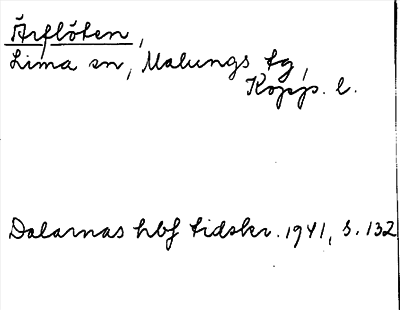 Ärflöten,
Lima sn, Malungs tg,
Kopp. l.
Dalarnas hbf tidskr. 1941, s. 132